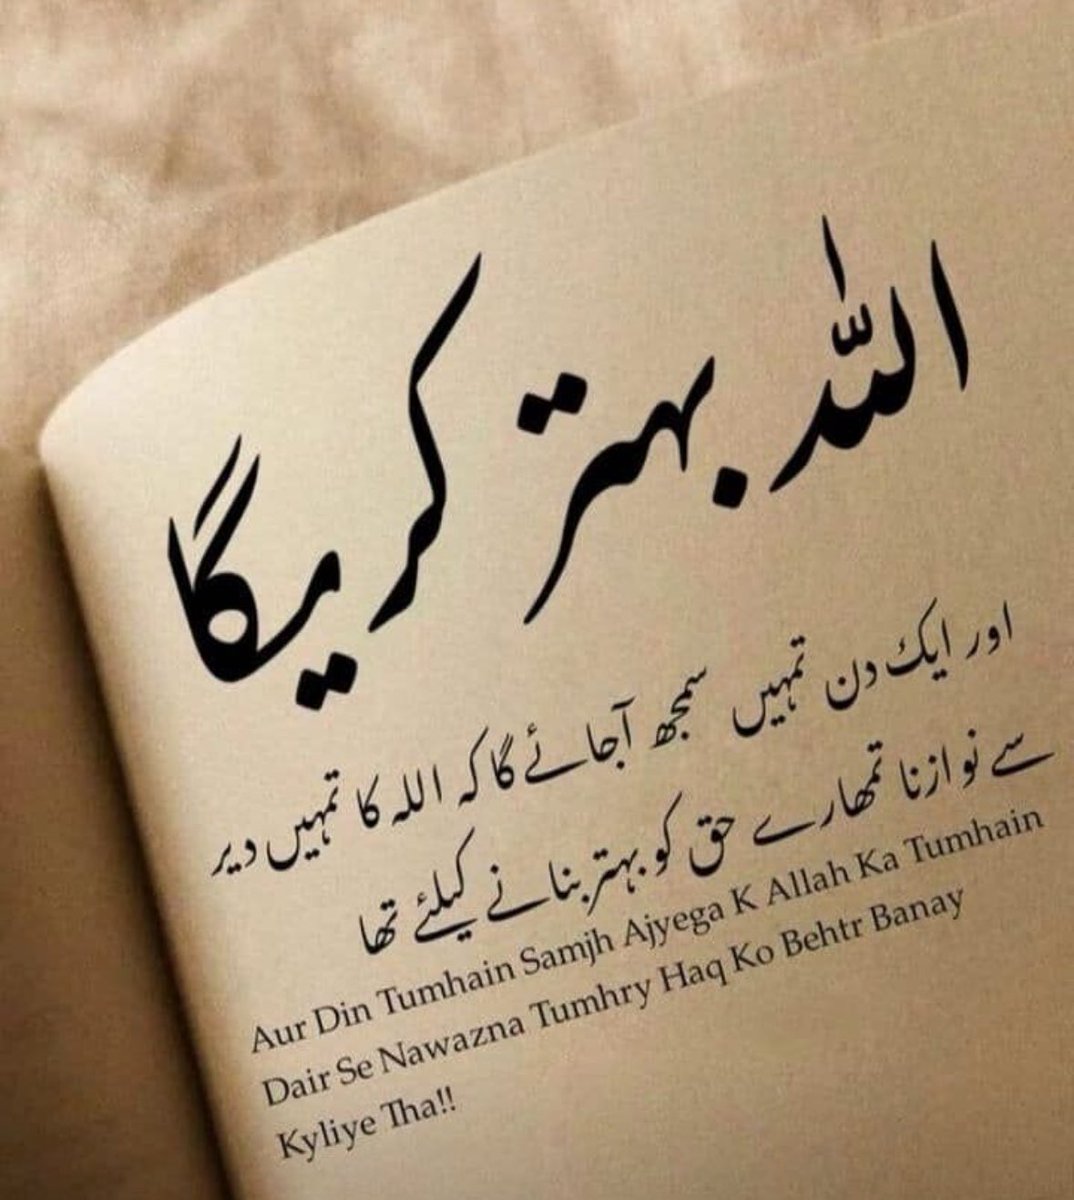 اللہ بہتر کریگا
اور ایک دن تمہیں سمجھ آجائے گا کہ اللہ کا تمہیں دیر
سے نوازنا تمھارے حق کو بہتر بنانے کیلئے تھا
Aur Din Tumhain Samjh Ajyega K Allah Ka Tumhain
Dair Se Nawazna Tumhry Haq Ko Behtr Banay
Kyliye Tha!!